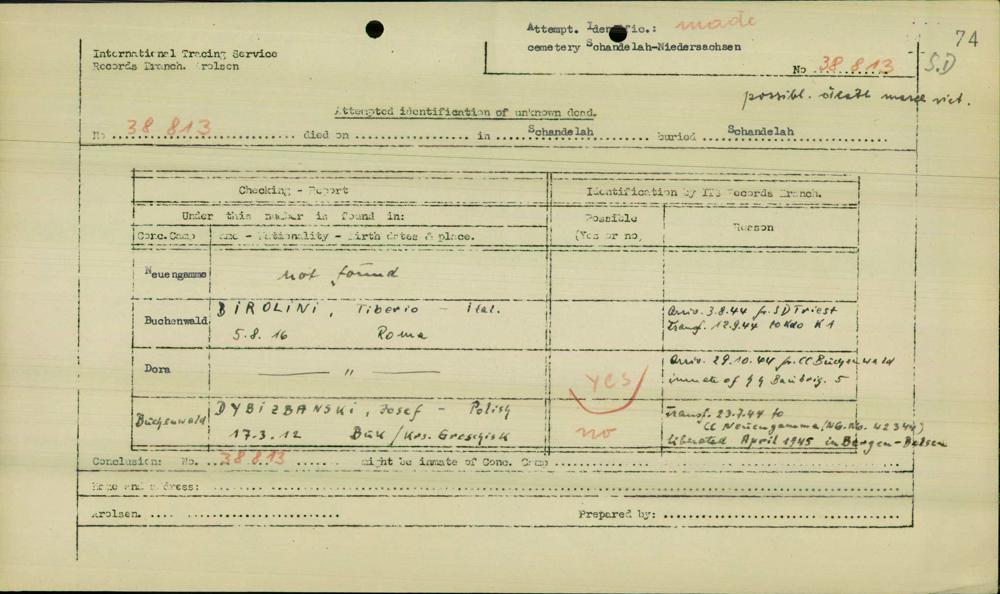 Attempt. Identific.: made
cemetery Schandelah-Niedersachsen
74
International Tracing Service
Records Branch. Arolsen
No 38 813
S.D
possibl. death march vict.
Attempted identification of unknown dead.
No 38 813 died on in Schandelah buried Schandelah
Checking - Report
Identification by ITS Records Branch.
Under this number is found in:
Possible
(Yes or no)
Reason
Conc.Camp
Name - Nationality - Birth dates & place.
Neuengamme
not found
Buchenwald
BIROLINI, Tiberio - ital.
5.8.16 Roma
Arriv. 3.8.44 fr. SD Triest
Transf. 12.9.44 to Kdo K1
Dora
"
yes
Arriv. 29.10.44 fr. CC Buchenwald
inmate of SS Baubrig. 5
Buchenwald
DYBIZBANSKI, Josef - Polish
17.3.12 Buk/Krs.
no
Transf. 23.7.44 to
CC Neuengamme (NG.No. 42344)
liberated April 1945 in Bergen-Belsen
Conclusion: No. 38 813 might be inmate of Conc. Camp
Name and address:
Arolsen.
Prepared by: